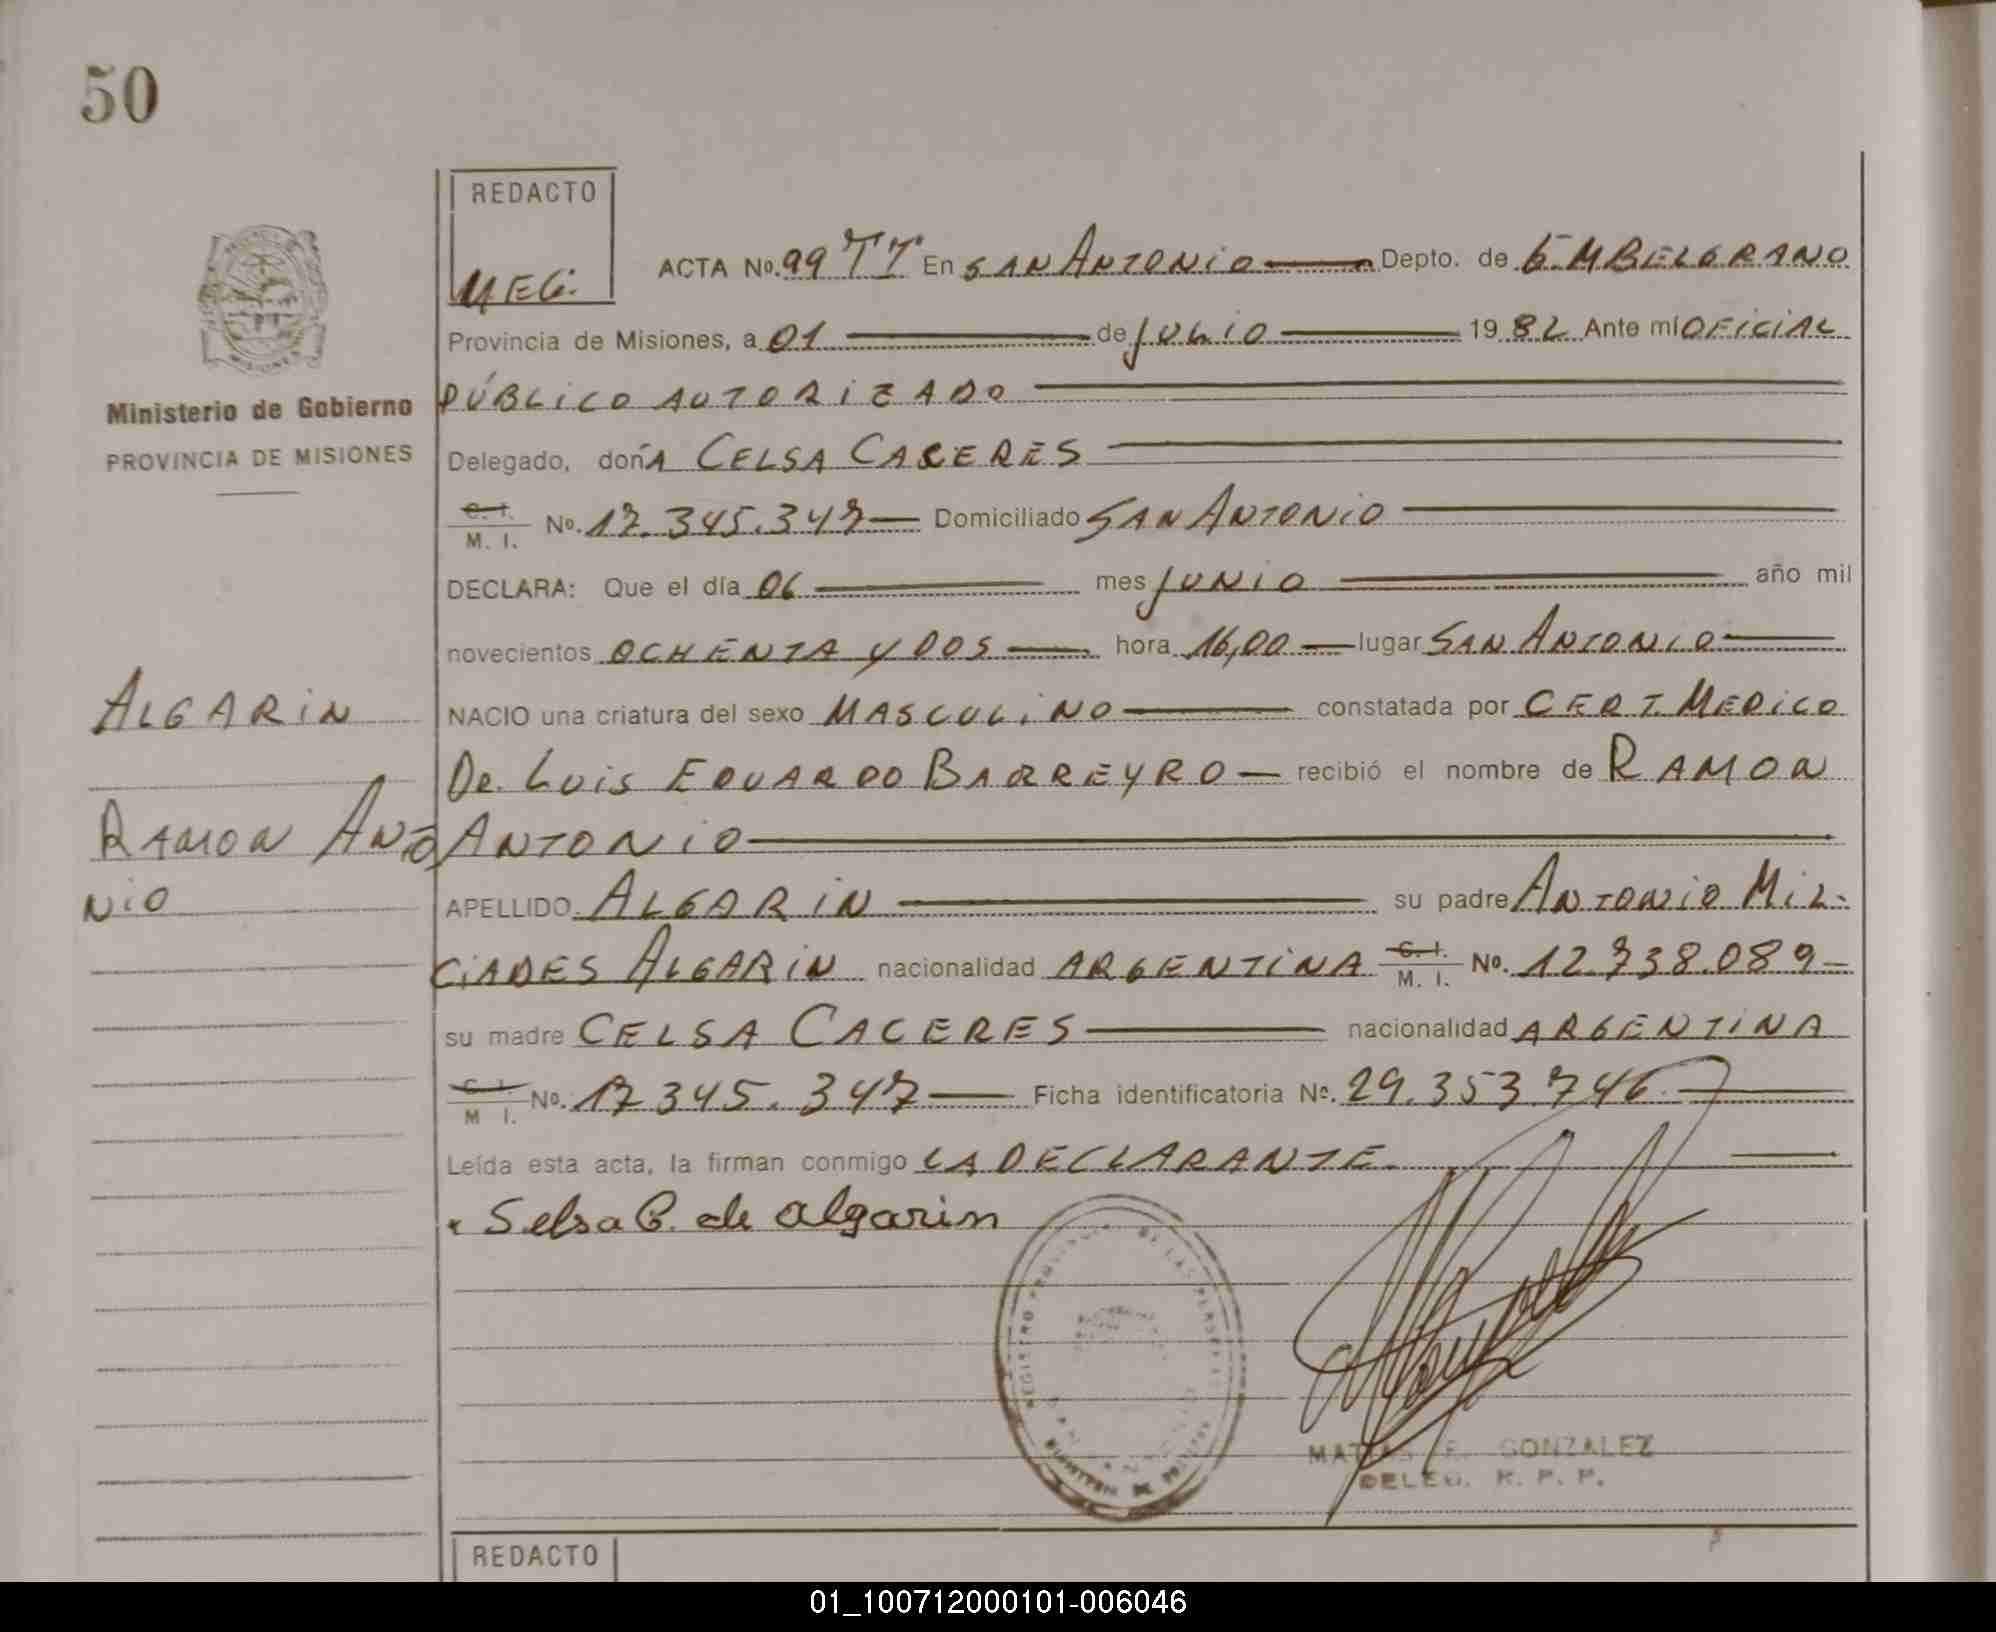 50
REDACTO
MEG.
ACTA No. 99 TI En SAN ANTONIO Depto. de G M BELGRANO
Provincia de Misiones, a 01 de JULIO 1982 Ante mí OFICIAL
Ministerio de Gobierno
PROVINCIA DE MISIONES
PÚBLICO AUTORIZADO
Delegado, doñA CELSA CACERES
C. I.
M. I. No. 17.345.347 Domiciliado SAN ANTONIO
DECLARA: Que el día 06 mes JUNIO año mil
novecientos OCHENTA Y DOS hora 16,00 lugar SAN ANTONIO
ALGARIN
NACIO una criatura del sexo MASCULINO constatada por CERT. MEDICO
De. LUIS EDUARDO BARREYRO recibió el nombre de RAMON
RAMON ANTO
NIO
ANTONIO
APELLIDO ALGARIN su padre ANTONIO MIL-
CIADES ALGARIN nacionalidad ARGENTINA C. I. M. I. No. 12.738.089
su madre CELSA CACERES nacionalidad ARGENTINA
C. I.
M I. No. 17 345.347 Ficha identificatoria No. 29.353.746
Leída esta acta, la firman conmigo LA DECLARANTE
Selsa C. de algarin
REGISTRO PROVINCIAL DE LAS PERSONAS
MATIAS GONZALEZ
DELEG. R. P. P.
REDACTO
01_100712000101-006046